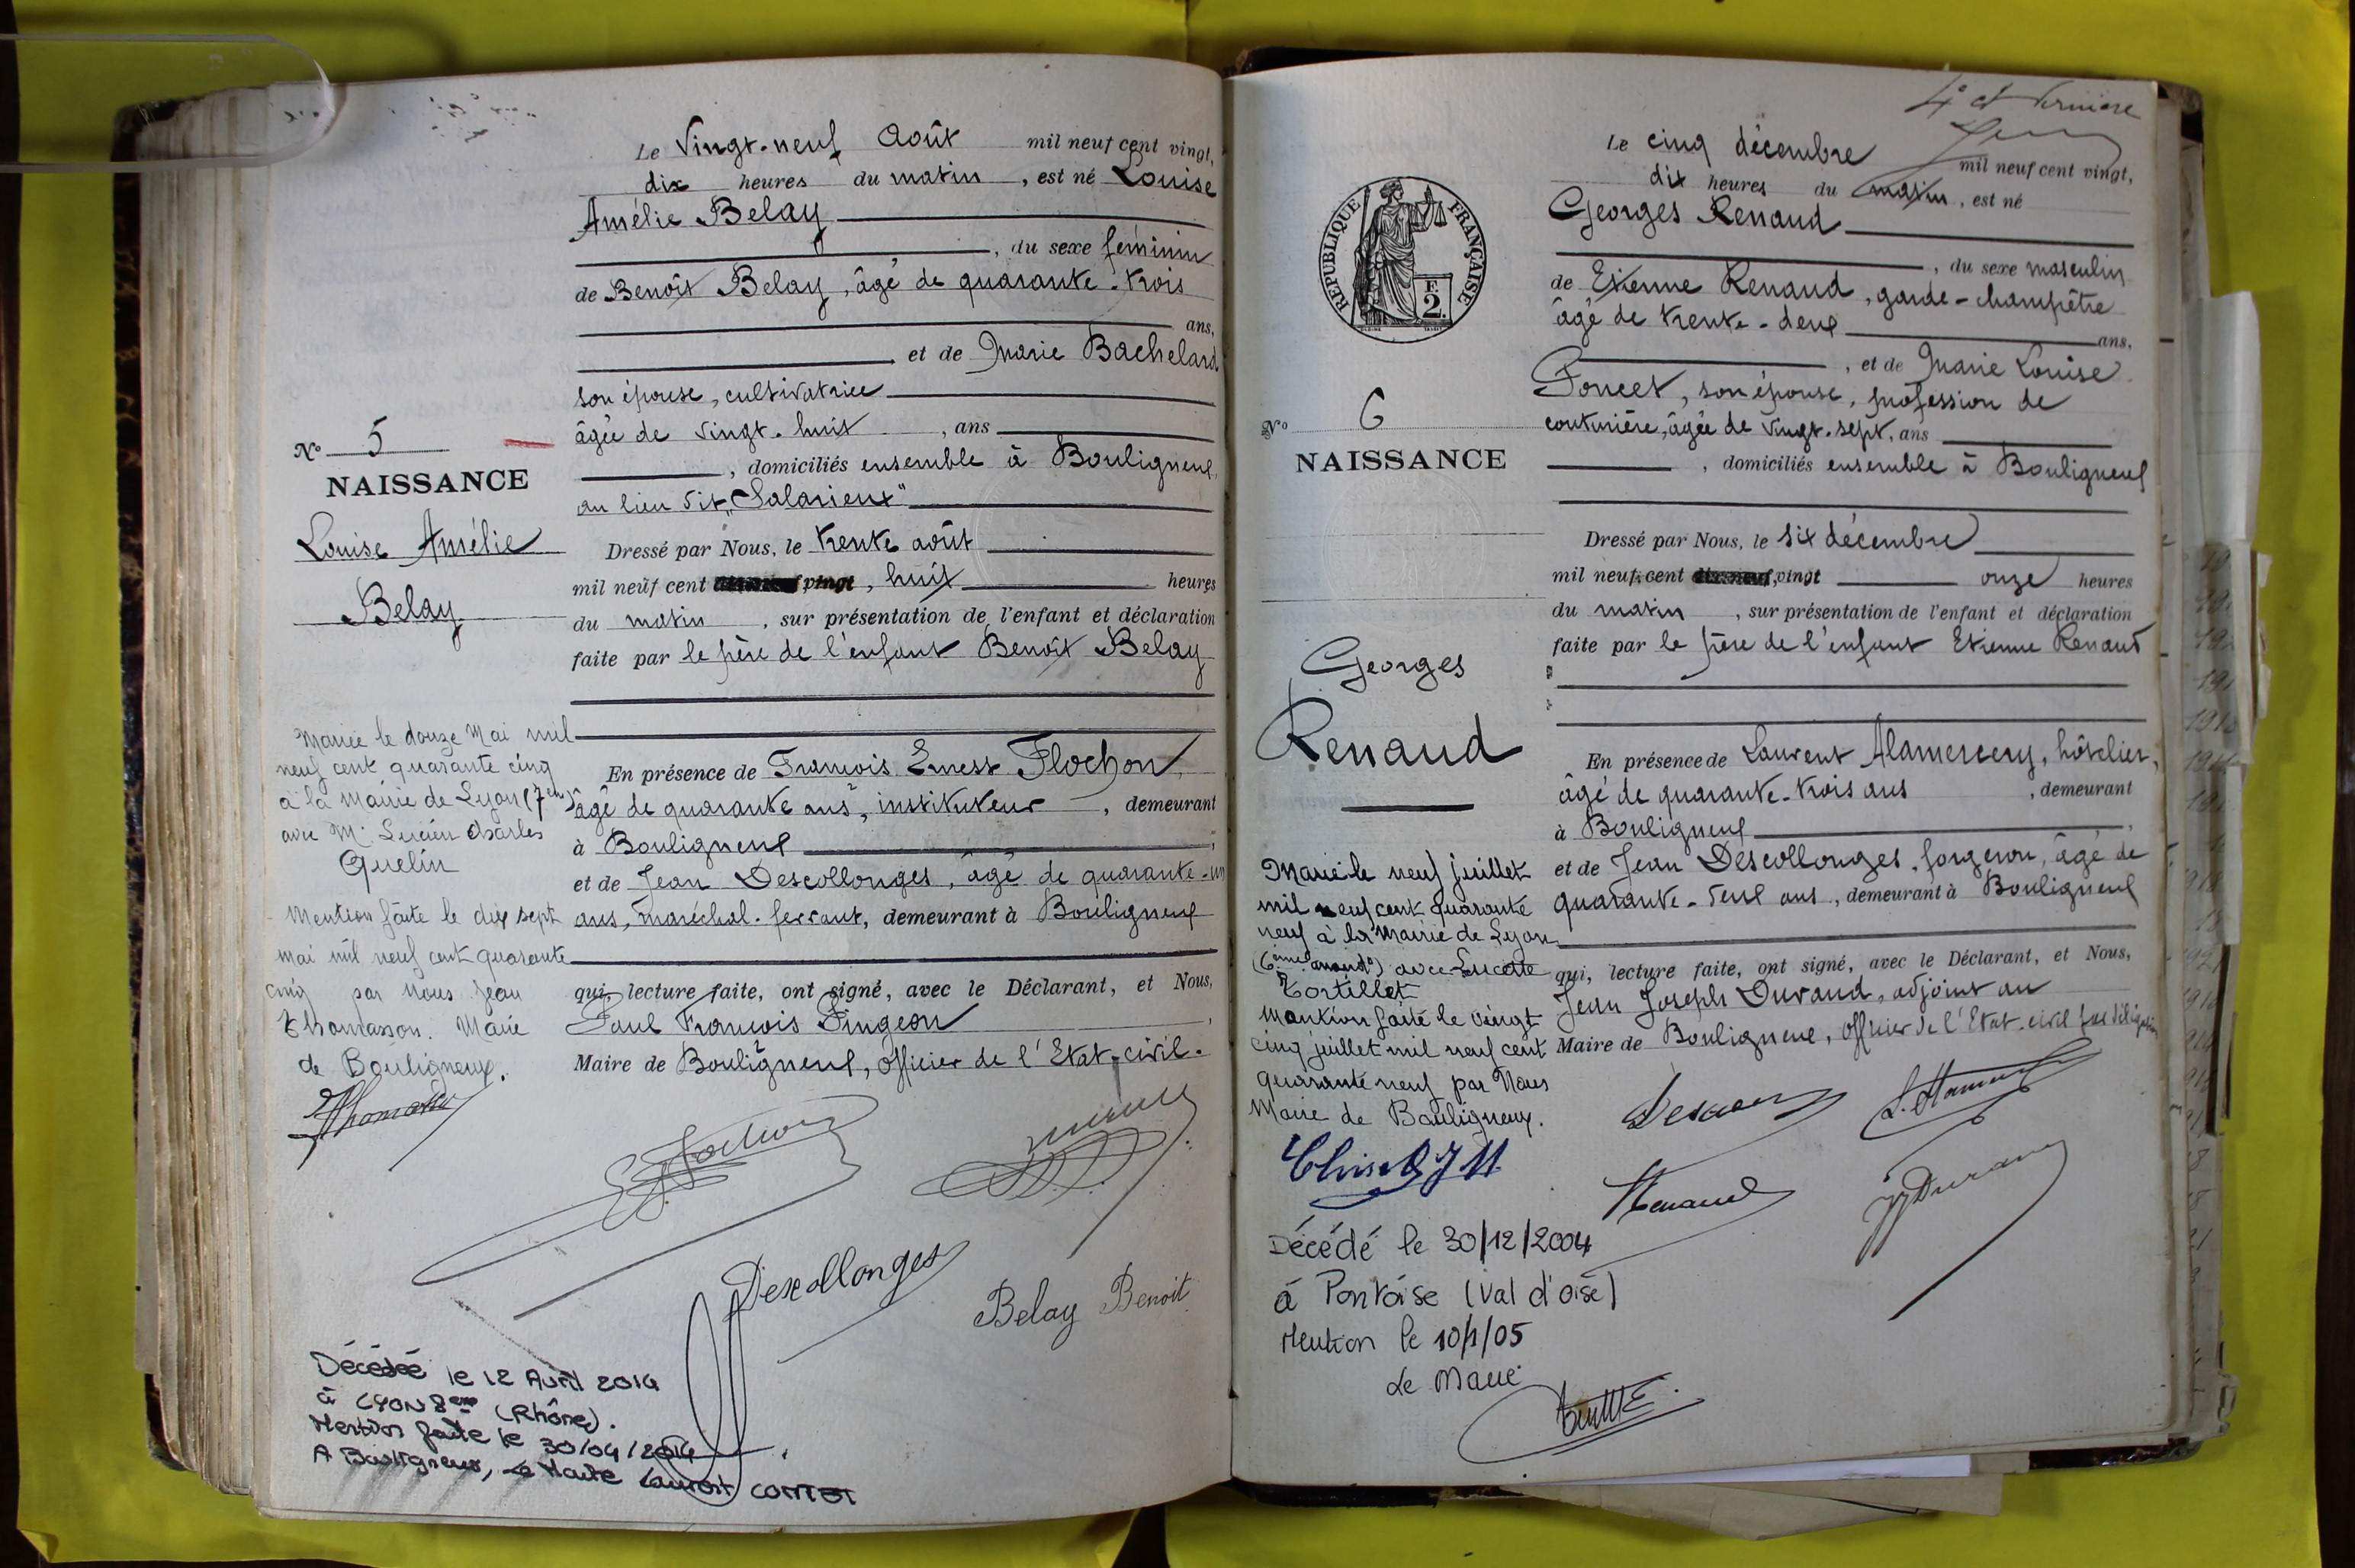 Le Vingt-neuf Août mil neuf cent vingt,
dix heures du matin, est né Louise
Amélie Belay
, du sexe féminin
de Benoît Belay, âgé de quarante-trois
ans,
et de Marie Bachelard
son épouse, cultivatrice
âgée de vingt-huit, ans
, domiciliés ensemble à Bouligneux,
au lieu dit „Salarieux"
Dressé par Nous, le trente août
mil neuf cent vingt, huit heures
du matin, sur présentation de l'enfant et déclaration
faite par le père de l'enfant Benoît Belay
En présence de François Ernest Flochon,
âgé de quarante ans, instituteur, demeurant
à Bouligneux,
et de Jean Descollonges, âgé de quarante-un
ans, maréchal-ferrant, demeurant à Bouligneux
qui, lecture faite, ont signé, avec le Déclarant, et Nous,
Paul François Pingeon,
Maire de Bouligneux, officier de l'Etat-civil.
Descollonges
Belay Benoit
No 5
NAISSANCE
Louise Amélie
Belay
Mariée le douze Mai mil
neuf cent quarante cinq
à la Mairie de Lyon (7e
avec Mr Lucien Charles
Quelin
Mention faite le dix sept
mai mil neuf cent quarante
cinq par nous Jean
Thomasson. Maire
de Bouligneux.
Thomasson
Décédée le 12 Avril 2014
à LYON 8eme (Rhône).
Mention faite le 30/04/2014
A Bouligneux, Le Maire Laurent COMTET
4e et dernière
REPUBLIQUE FRANÇAISE
F.
2.
No 6
NAISSANCE
Georges
Renaud
Le cinq décembre mil neuf cent vingt,
dix heures du matin, est né
Georges Renaud
, du sexe masculin
de Etienne Renaud, garde-champêtre
âgé de trente-deux ans,
, et de Marie Louise
Poncet, son épouse, profession de
couturière, âgée de vingt-sept, ans
, domiciliés ensemble à Bouligneux
Dressé par Nous, le six décembre
mil neuf cent vingt onze heures
du matin, sur présentation de l'enfant et déclaration
faite par le père de l'enfant Etienne Renaud
En présence de Laurent Alamercery, hôtelier,
âgé de quarante-trois ans, demeurant
à Bouligneux,
et de Jean Descollonges, forgeron, âgé de
quarante-deux ans, demeurant à Bouligneux
qui, lecture faite, ont signé, avec le Déclarant, et Nous,
Jean Joseph Durand, adjoint au
Maire de Bouligneux, officier de l'Etat-civil par délégation
Renaud
JJ Durand
Marié le neuf juillet
mil neuf cent quarante
neuf à la Mairie de Lyon
(6ème arrondt) avec Lucette
Tortillet
Mention faite le vingt
cinq juillet mil neuf cent
quarante neuf par Nous
Maire de Bouligneux.
Décédé le 30/12/2004
à Pontoise (Val d'oise)
Mention le 10/1/05
Le Maire